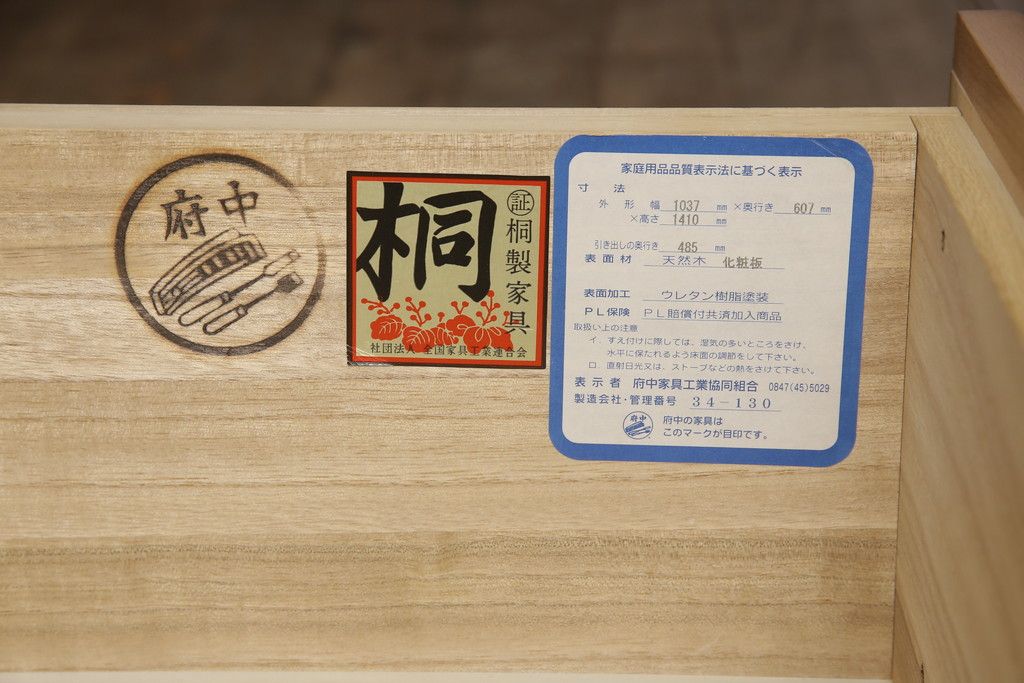 府中
桐
証
桐製家具
社団法人 全国家具工業連合会
家庭用品品質表示法に基づく表示
寸 法
外 形 幅 1037 mm ×奥行き 607 mm
×高さ 1410 mm
引き出しの奥行き 485 mm
表面材 天然木 化粧板
表面加工 ウレタン樹脂塗装
PL保険 PL賠償付共済加入商品
取扱い上の注意
イ．すえ付けに際しては、湿気の多いところをさけ、
水平に保たれるよう床面の調節をして下さい。
ロ．直射日光又は、ストーブなどの熱をさけて下さい。
表示者 府中家具工業協同組合 0847(45)5029
製造会社・管理番号 34-130
府中
府中の家具は
このマークが目印です。